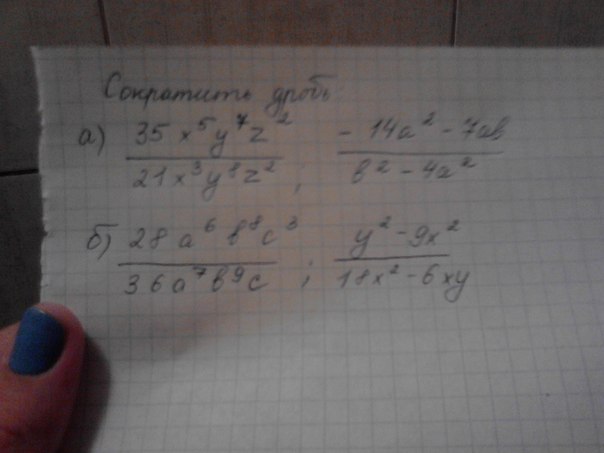 Сократить дробь
а) 35x⁵y⁷z² / 21x³y⁸z² , -14a² - 7ab / b² - 4a²
б) 28a⁶b⁸c³ / 36a⁷b⁹c ; y² - 9x² / 18x² - 6xy